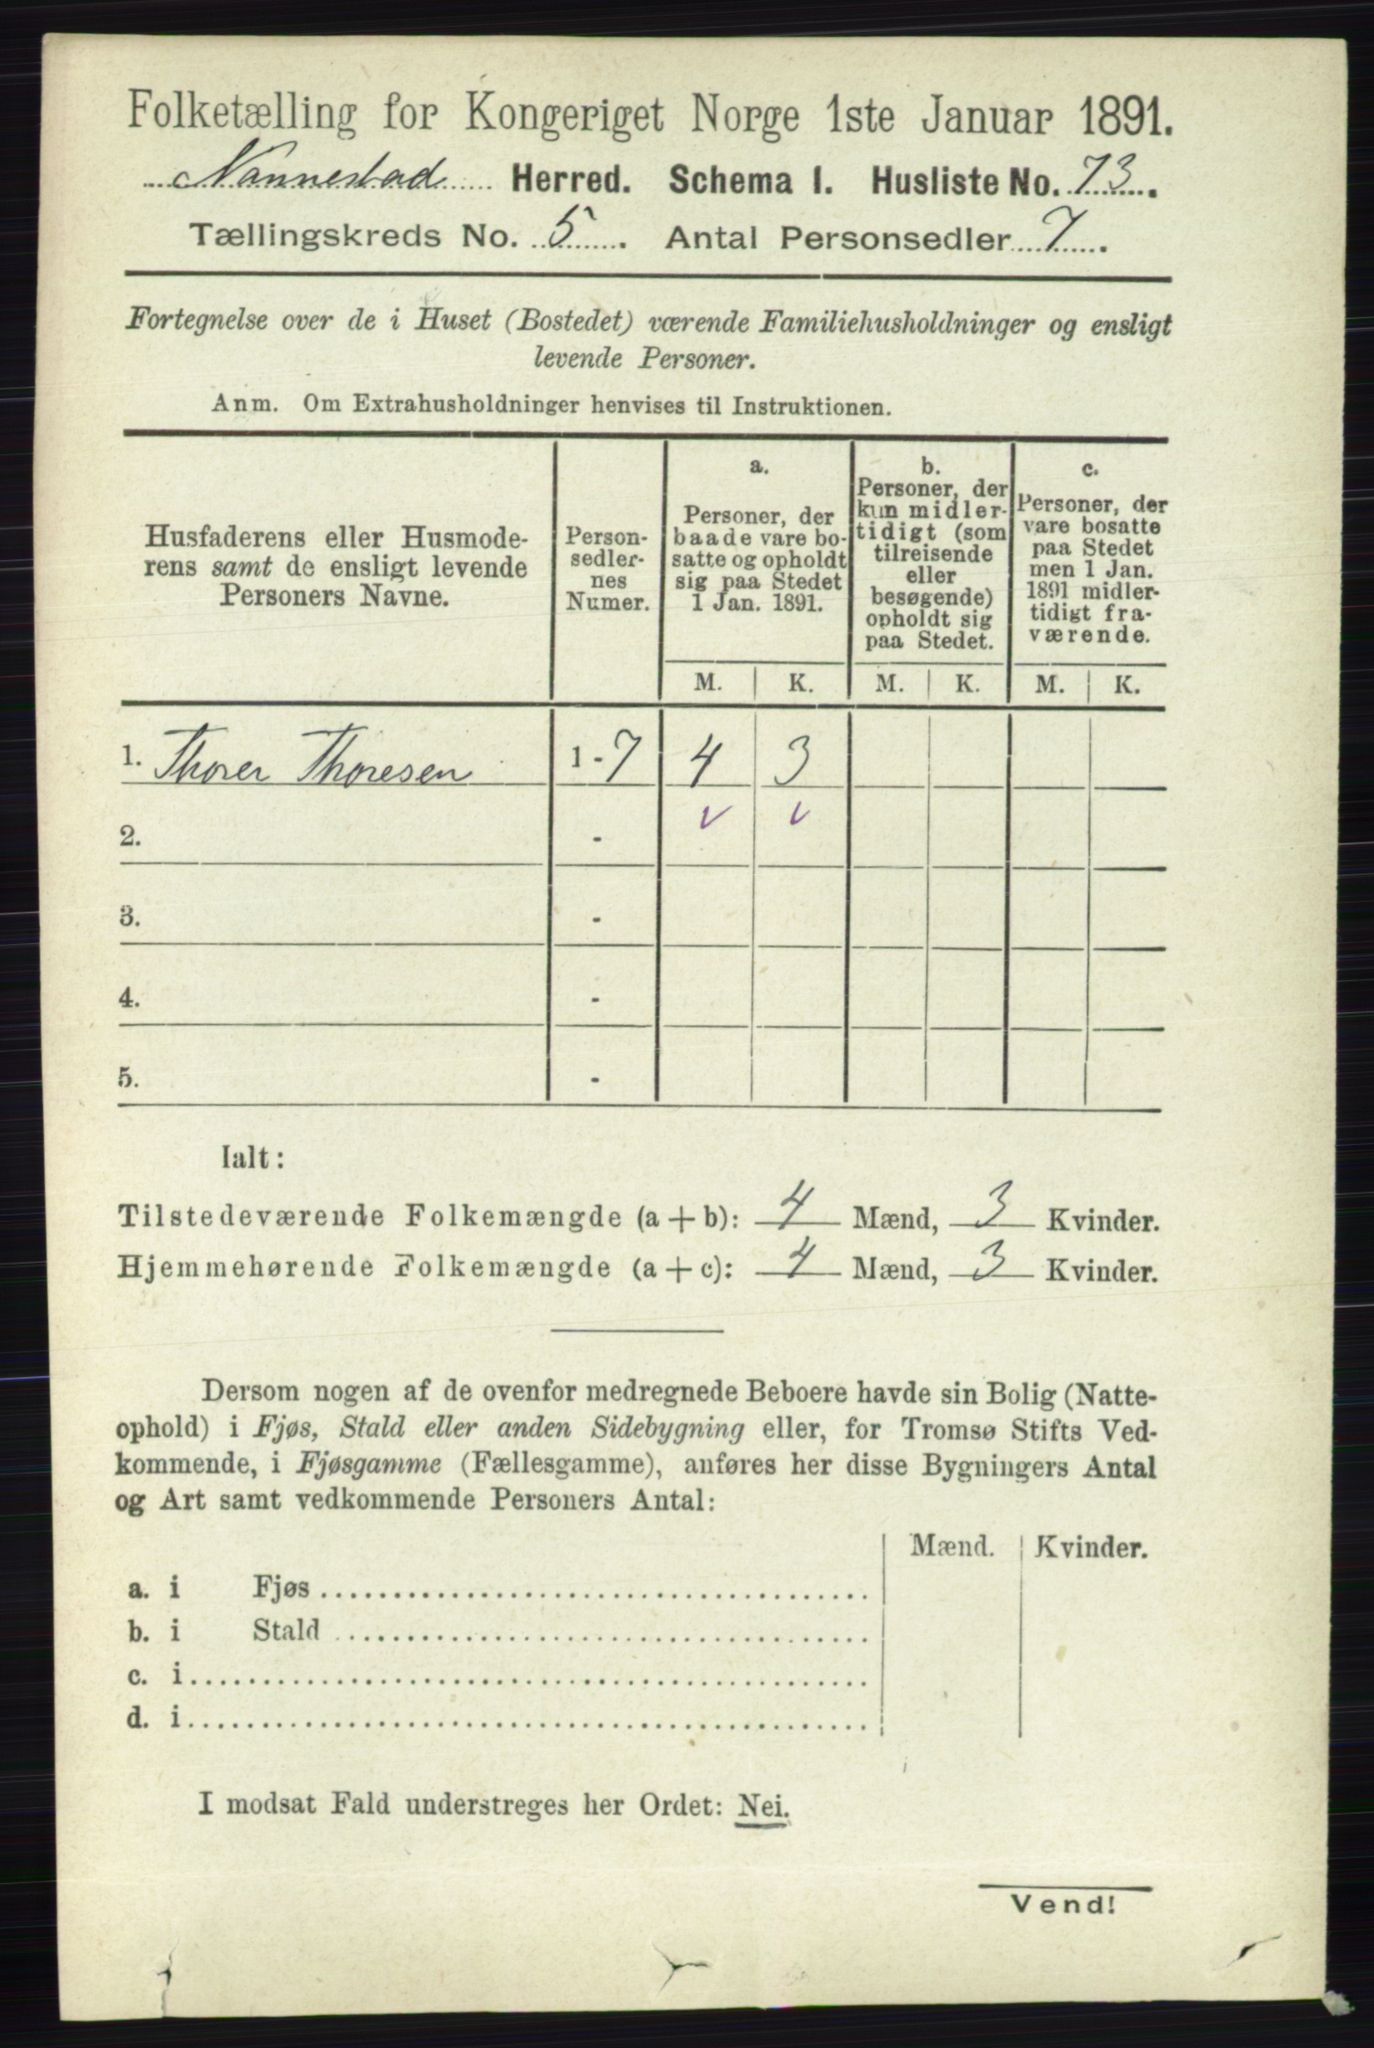 Folketælling for Kongeriget Norge 1ste Januar 1891.
Nannestad Herred. Schema I. Husliste No. 73.
Tællingskreds No. 5. Antal Personsedler 7.
Fortegnelse over de i Huset (Bostedet) værende Familiehusholdninger og ensligt
levende Personer.
Anm. Om Extrahusholdninger henvises til Instruktionen.
Husfaderens eller Husmode-
rens samt de ensligt levende
Personers Navne.
Person-
sedler-
nes
Numer.
a.
Personer, der
baade vare bo-
satte og opholdt
sig paa Stedet
1 Jan. 1891.
b.
Personer, der
kun midler-
tidigt (som
tilreisende
eller
besøgende)
opholdt sig
paa Stedet.
c.
Personer, der
vare bosatte
paa Stedet
men 1 Jan.
1891 midler-
tidigt fra-
værende.
M. K. M. K. M. K.
1. Thorer Thoresen 1 - 7 4 3
2. - v v
3. -
4. -
5. -
Ialt:
Tilstedeværende Folkemængde (a + b): 4 Mænd, 3 Kvinder.
Hjemmehørende Folkemængde (a + c): 4 Mænd, 3 Kvinder.
Dersom nogen af de ovenfor medregnede Beboere havde sin Bolig (Natte-
ophold) i Fjøs, Stald eller anden Sidebygning eller, for Tromsø Stifts Ved-
kommende, i Fjøsgamme (Fællesgamme), anføres her disse Bygningers Antal
og Art samt vedkommende Personers Antal:
Mænd. Kvinder.
a. i Fjøs
b. i Stald
c. i
d. i
I modsat Fald understreges her Ordet: Nei.
Vend!